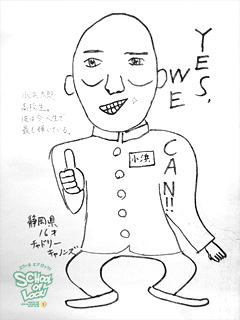 YES,
WE
CAN!!
小浜太郎
高校生。
俺は今人生で
最も輝いている。
小浜
静岡県
16才
チャドリー
キャノンズ
SCHOOL
OF
LOCK!